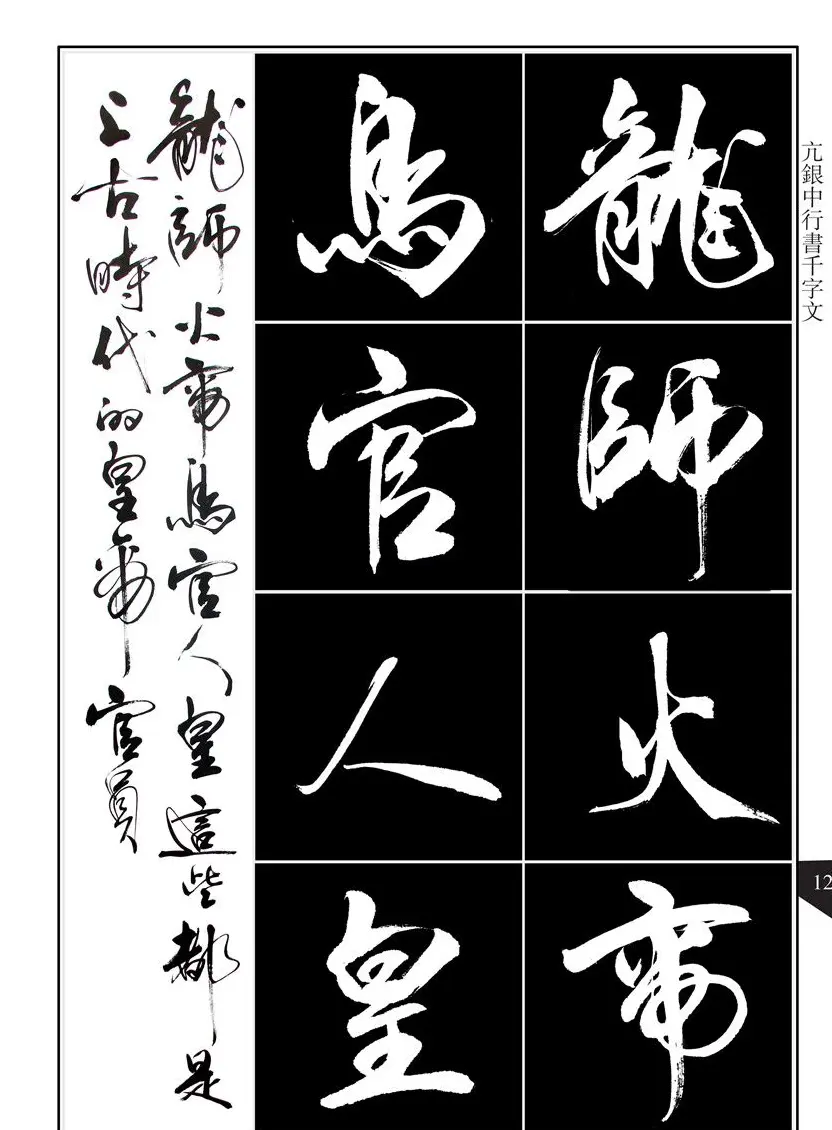 亢銀中行書千字文
12
龍師火帝
鳥官人皇
龍師火帝鳥官人皇這些都是
上古時代的皇帝官員